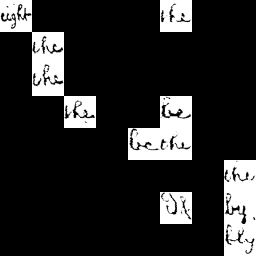 eight the
the
the
the be
be the
the
by
bly